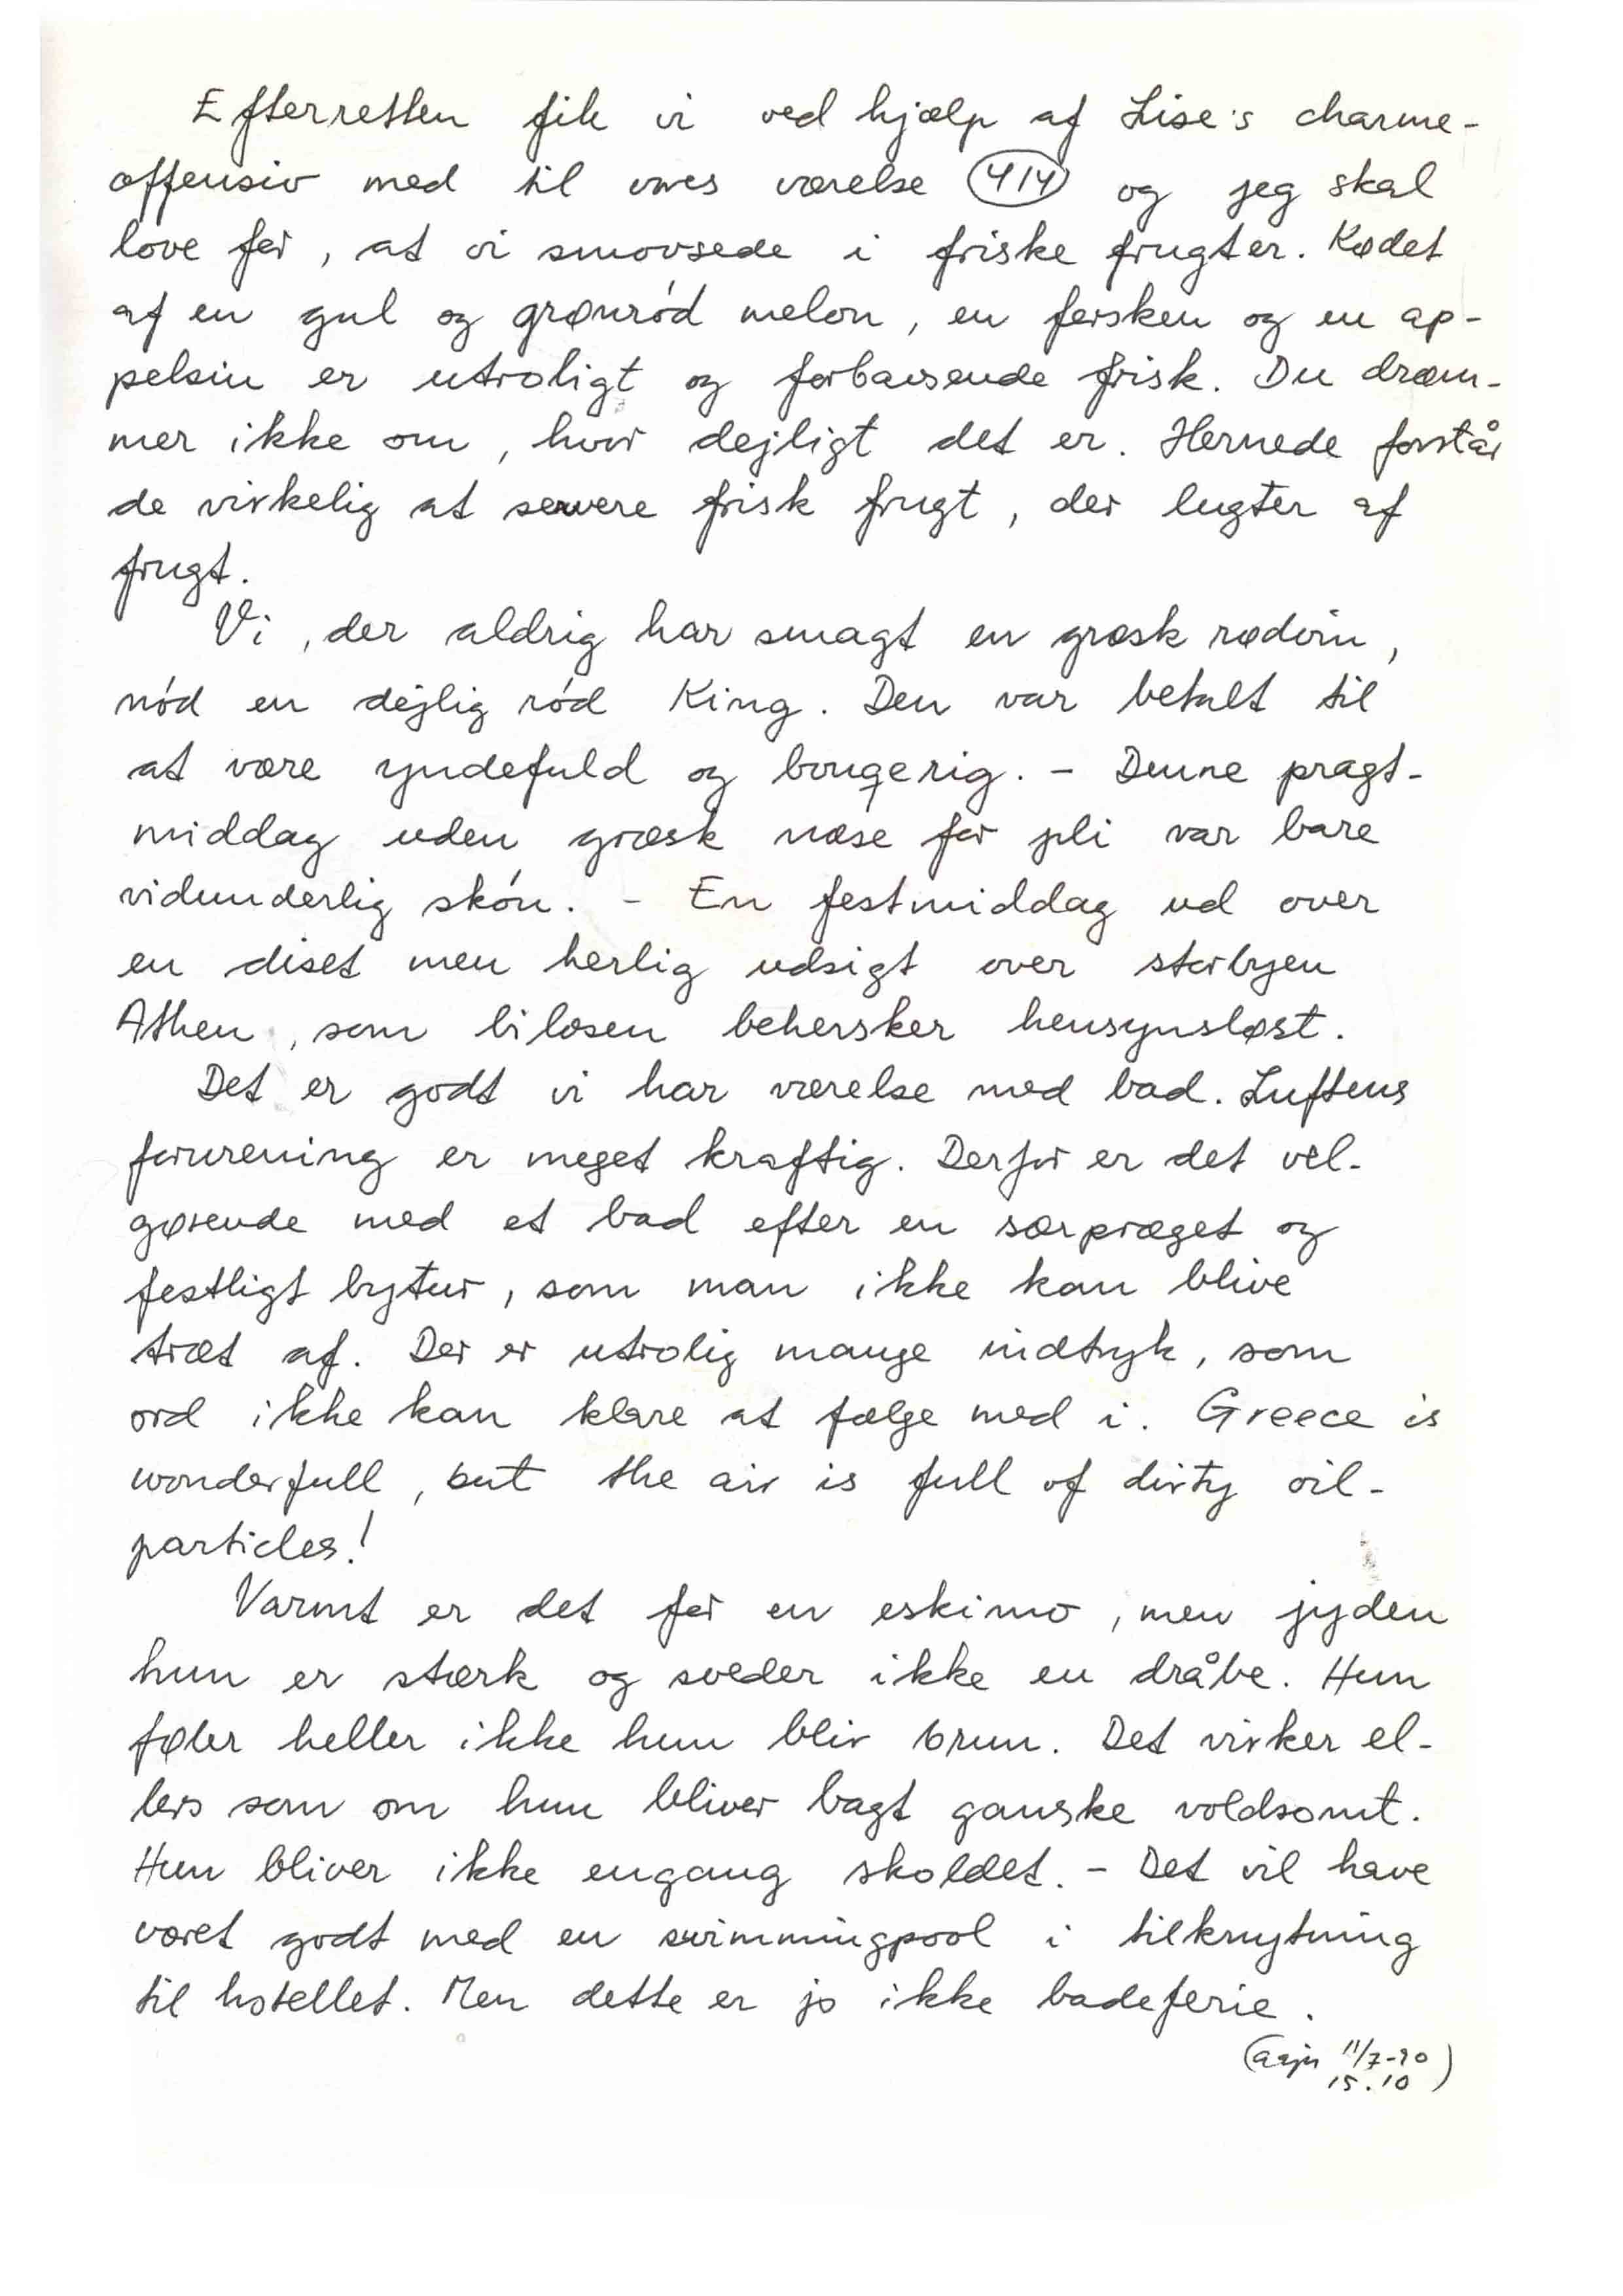 Efterretten fik vi ved hjælp af Lise's charme-
offensiv med til vores værelse 414 og jeg skal
love for, at vi smovsede i friske frugter. Kødet
af en gul og grønrød melon, en fersken og en ap-
pelsin er utroligt og forbavsende frisk. Du drøm-
mer ikke om, hvor dejligt det er. Hernede forstår
de virkelig at servere frisk frugt, der lugter af
frugt.
Vi, der aldrig har smagt en græsk rødvin,
nød en dejlig rød King. Den var betalt til
at være yndefuld og bouqerig. - Denne pragt-
middag uden græsk næse for pli var bare
vidunderlig skøn. - En festmiddag ud over
en diset men herlig udsigt over storbyen
Athen, som bilosen behersker hensynsløst.
Det er godt vi har værelse med bad. Luftens
forurening er meget kraftig. Derfor er det vel-
gørende med et bad efter en særpræget og
festligt bytur, som man ikke kan blive
træt af. Der er utrolig mange indtryk, som
ord ikke kan klare at følge med i. Greece is
wonderfull, but the air is full of dirty oil-
particles!
Varmt er det for en eskimo, men jyden
hun er stærk og sveder ikke en dråbe. Hun
føler heller ikke hun bliv brun. Det virker el-
lers som om hun bliver bagt ganske voldsomt.
Hun bliver ikke engang skoldet. - Det vil have
været godt med en swimmingpool i tilknytning
til hotellet. Men dette er jo ikke badeferie.
( 11/7-90
15.10)